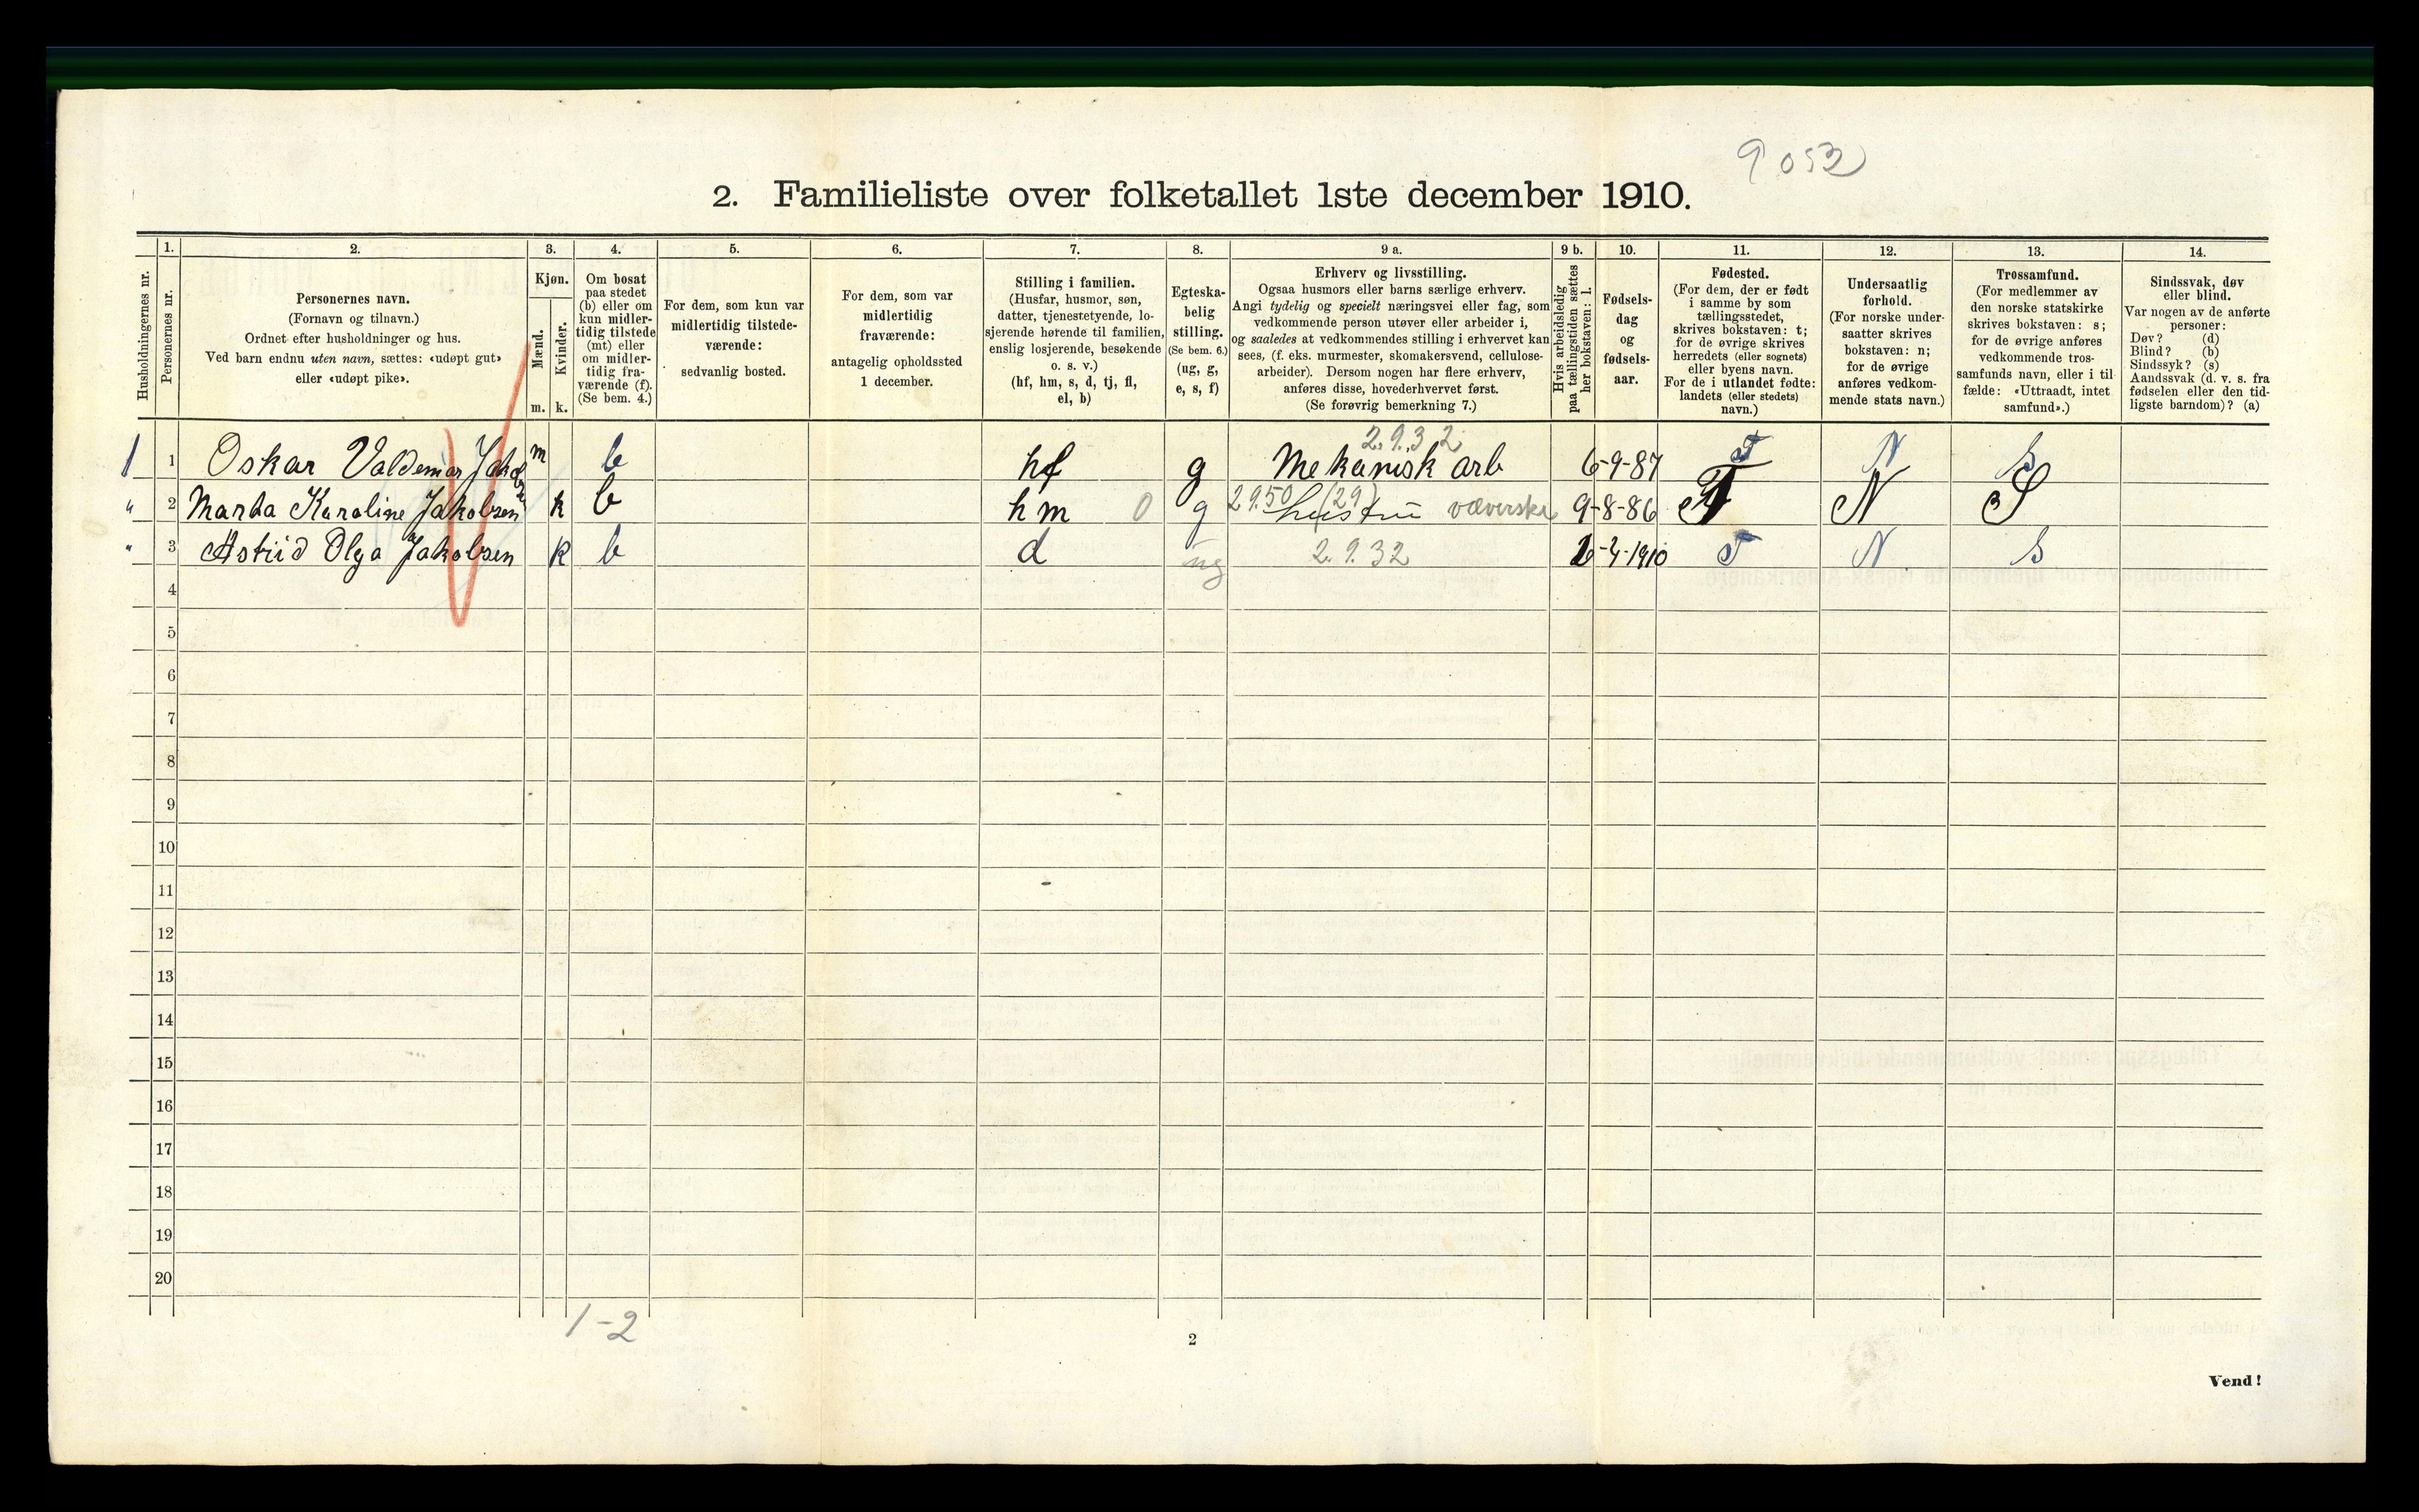 9053
2. Familieliste over folketallet 1ste december 1910.
Husholdningernes nr.
1.
Personernes nr.
2.
Personernes navn.
(Fornavn og tilnavn.)
Ordnet efter husholdninger og hus.
Ved barn endnu uten navn, sættes: «udøpt gut»
eller «udøpt pike».
3.
Kjøn.
Mænd.
Kvinder.
m. k.
4.
Om bosat
paa stedet
(b) eller om
kun midler-
tidig tilstede
(mt) eller
om midler-
tidig fra-
værende (f).
(Se bem. 4.)
5.
For dem, som kun var
midlertidig tilstede-
værende:
sedvanlig bosted.
6.
For dem, som var
midlertidig
fraværende:
antagelig opholdssted
1 december.
7.
Stilling i familien.
(Husfar, husmor, søn,
datter, tjenestetyende, lo-
sjerende hørende til familien,
enslig losjerende, besøkende
o. s. v.)
(hf, hm, s, d, tj, fl,
el, b)
8.
Egteska-
belig
stilling.
(Se bem. 6.)
(ug, g,
e, s, f)
9 a.
Erhverv og livsstilling.
Ogsaa husmors eller barns særlige erhverv.
Angi tydelig og specielt næringsvei eller fag, som
vedkommende person utøver eller arbeider i,
og saaledes at vedkommendes stilling i erhvervet kan
sees, (f. eks. murmester, skomakersvend, cellulose-
arbeider). Dersom nogen har flere erhverv,
anføres disse, hovederhvervet først.
(Se forøvrig bemerkning 7.)
9 b.
Hvis arbeidsledig
paa tællingstiden sættes
her bokstaven: l.
10.
Fødsels-
dag
og
fødsels-
aar.
11.
Fødested.
(For dem, der er født
i samme by som
tællingsstedet,
skrives bokstaven: t;
for de øvrige skrives
herredets (eller sognets)
eller byens navn.
For de i utlandet fødte:
landets (eller stedets)
navn.)
12.
Undersaatlig
forhold.
(For norske under-
saatter skrives
bokstaven: n;
for de øvrige
anføres vedkom-
mende stats navn.)
13.
Trossamfund.
(For medlemmer av
den norske statskirke
skrives bokstaven: s;
for de øvrige anføres
vedkommende tros-
samfunds navn, eller i til-
fælde: «Uttraadt, intet
samfund».)
14.
Sindssvak, døv
eller blind.
Var nogen av de anførte
personer:
Døv? (d)
Blind? (b)
Sindssyk? (s)
Aandssvak (d. v. s. fra
fødselen eller den tid-
ligste barndom)? (a)
2.9.32
1 1 Oskar Valdemar Jakobsen m b hf g Mekanisk arb 6-9-87 T N S
" 2 Marta Karoline Jakobsen k b hm 0 g 2950 (29) hustru væverske 9-8-86 T N S
" 3 Astrid Olga Jakobsen k b d ug 2.9.32 -4-1910 T N S
4
5
6
7
8
9
10
11
12
13
14
15
16
17
18
19
20
1-2
2
Vend!